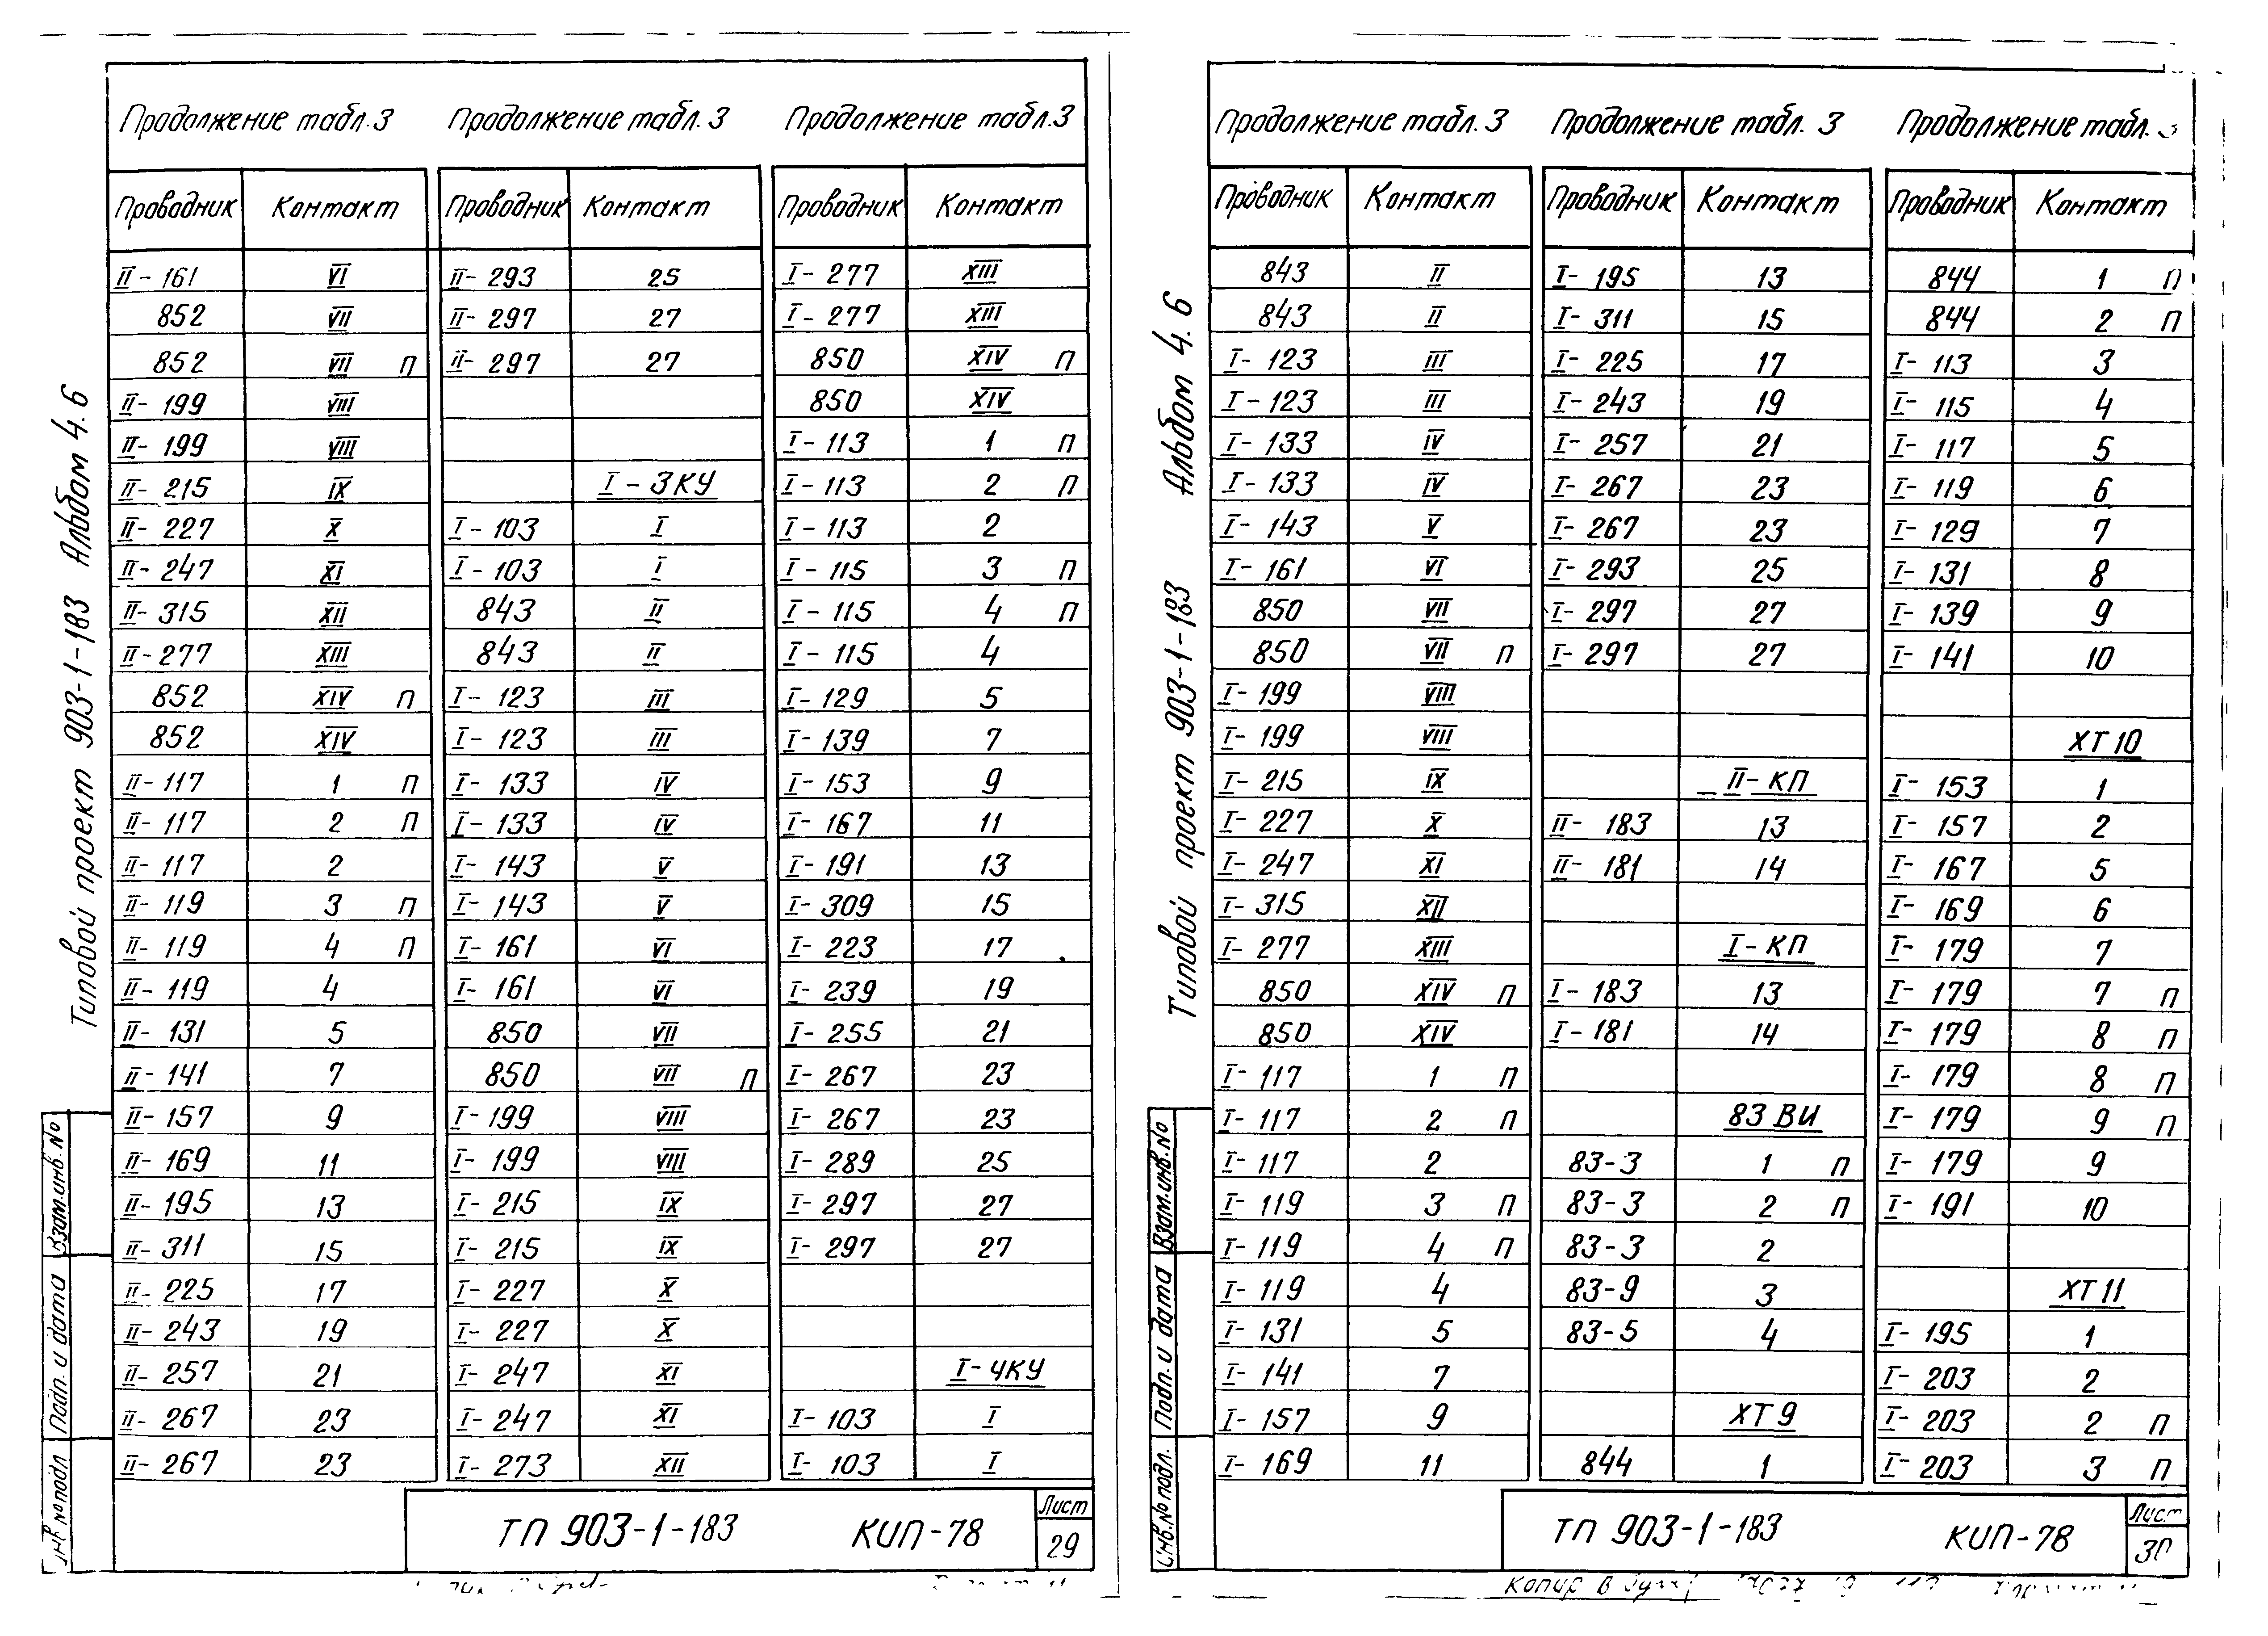 Типовой проект 903-1-183 Альбом 4.6
Продолжение табл.3
Проводник Контакт
II-161 VI
852 VII
852 VII П
II-199 VIII
II-199 VIII
II-215 IX
II-227 X
II-247 XI
II-315 XII
II-277 XIII
852 XIV П
852 XIV
II-117 1 П
II-117 2 П
II-117 2
II-119 3 П
II-119 4 П
II-119 4
II-131 5
II-141 7
II-157 9
II-169 11
II-195 13
II-311 15
II-225 17
II-243 19
II-257 21
II-267 23
II-267 23
Продолжение табл.3
Проводник Контакт
II-293 25
II-297 27
II-297 27
I-3КУ
I-103 I
I-103 I
843 II
843 II
I-123 III
I-123 III
I-133 IV
I-133 IV
I-143 V
I-143 V
I-161 VI
I-161 VI
850 VII
850 VII П
I-199 VIII
I-199 VIII
I-215 IX
I-215 IX
I-227 X
I-227 X
I-247 XI
I-247 XI
I-273 XII
Продолжение табл.3
Проводник Контакт
I-277 XIII
I-277 XIII
850 XIV П
850 XIV
I-113 1 П
I-113 2 П
I-113 2
I-115 3 П
I-115 4 П
I-115 4
I-129 5
I-139 7
I-153 9
I-167 11
I-191 13
I-309 15
I-223 17
I-239 19
I-255 21
I-267 23
I-267 23
I-289 25
I-297 27
I-297 27
I-4КУ
I-103 I
I-103 I
Взам.инв.No
Подп. и дата
No подл
ТП 903-1-183 КИП-78
Лист
29
Типовой проект 903-1-183 Альбом 4.6
Продолжение табл.3
Проводник Контакт
843 II
843 II
I-123 III
I-123 III
I-133 IV
I-133 IV
I-143 V
I-161 VI
850 VII
850 VII П
I-199 VIII
I-199 VIII
I-215 IX
I-227 X
I-247 XI
I-315 XII
I-277 XIII
850 XIV П
850 XIV
I-117 1 П
I-117 2 П
I-117 2
I-119 3 П
I-119 4 П
I-119 4
I-131 5
I-141 7
I-157 9
I-169 11
Продолжение табл. 3
Проводник Контакт
I-195 13
I-311 15
I-225 17
I-243 19
I-257 21
I-267 23
I-267 23
I-293 25
I-297 27
I-297 27
II-КП
II-183 13
II-181 14
I-КП
I-183 13
I-181 14
83 ВИ
83-3 1 П
83-3 2 П
83-3 2
83-9 3
83-5 4
ХТ9
844 1
Продолжение табл. 3
Проводник Контакт
844 1 П
844 2 П
I-113 3
I-115 4
I-117 5
I-119 6
I-129 7
I-131 8
I-139 9
I-141 10
ХТ10
I-153 1
I-157 2
I-167 5
I-169 6
I-179 7
I-179 7 П
I-179 8 П
I-179 8 П
I-179 9 П
I-179 9
I-191 10
ХТ11
I-195 1
I-203 2
I-203 2 П
I-203 3 П
Взам.инв.No
Подп. и дата
Инв.No подл.
ТП 903-1-183 КИП-78
Лист
30
Копир